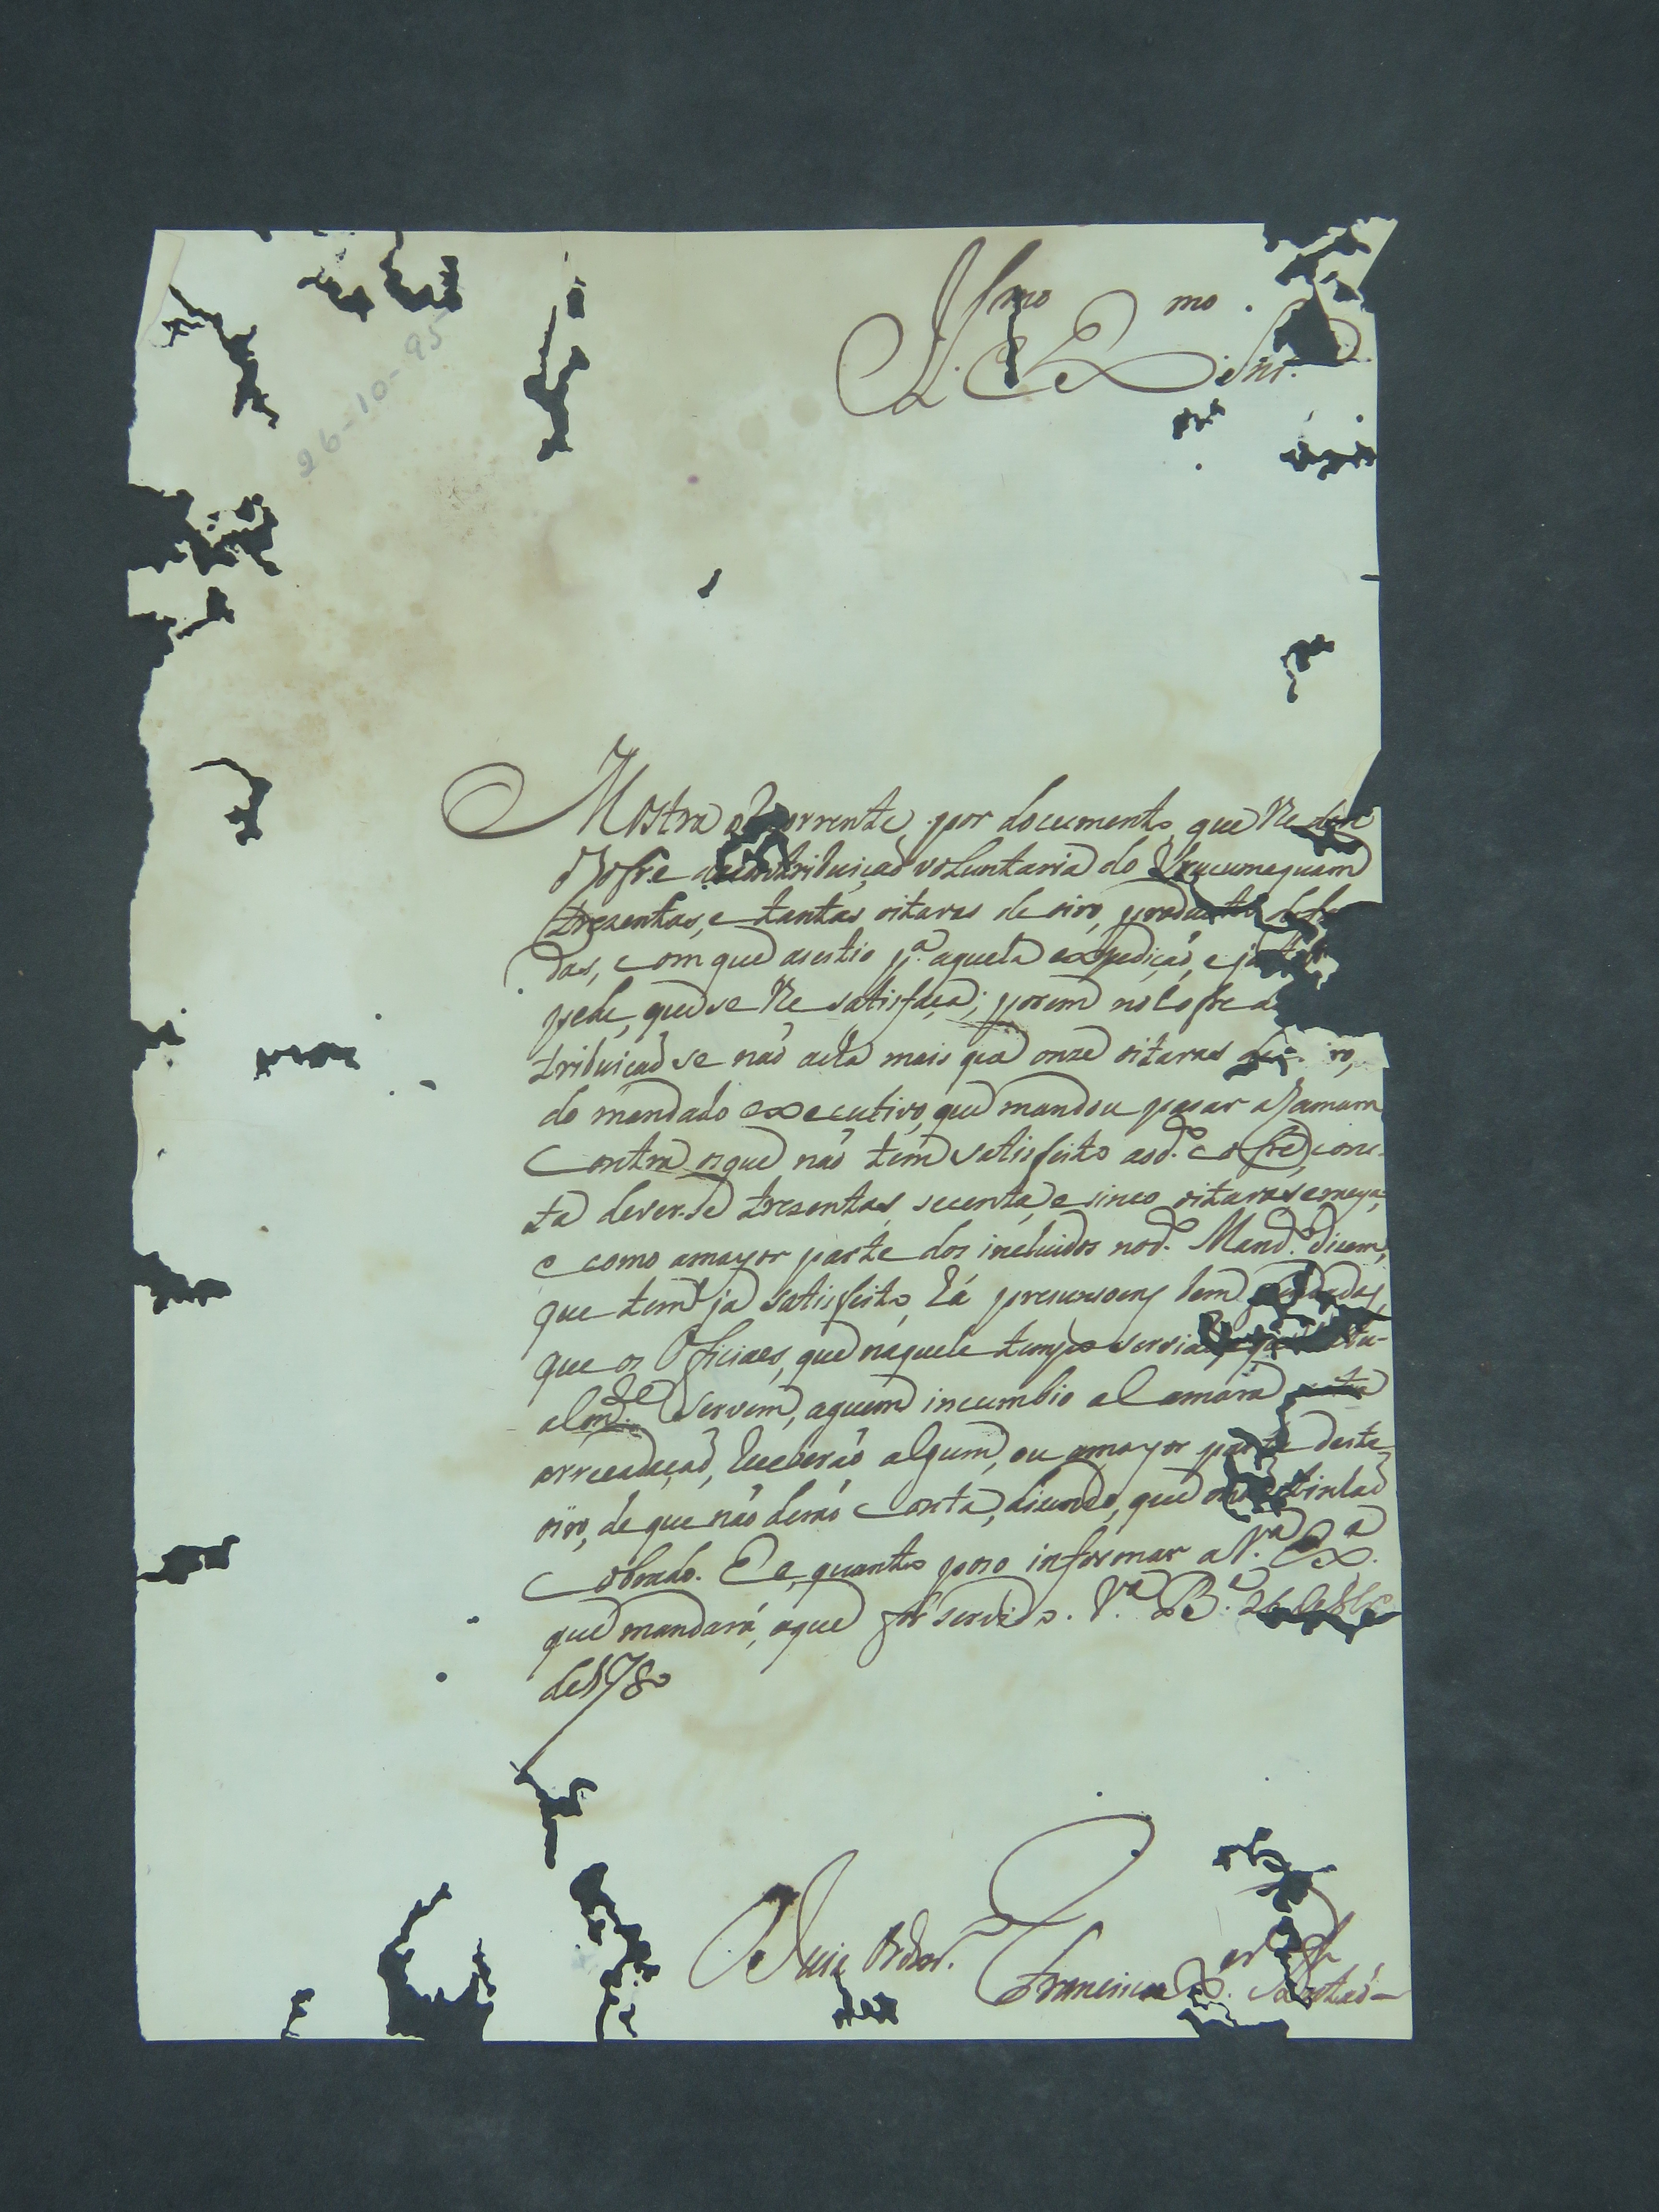 26-10-95
Illmo. e Exmo. Snr.
Mostra o Recorrente, por documento, que lhe deve
o Cofre da contribuiçaõ voluntaria do Urucumaquam
trezentas, e tantas oitavas de oiro, producto
das, com que asestio p.ª aquela expediçaõ, e já
pede, que se lhe satisfaça; porem no Cofre
tribuiçaõ se naõ acha mais que onze oitavas de iro,
do mandado executivo, que mandou pasar a Camara
Contra os que naõ tem satisfeito aod.º cofre, cons-
ta dever-se trezentas, secenta, e sinco oitavas e meya;
e como a mayor parte dos incluidos nod.º Mand.º dicem,
que tem já satisfeito, há presunsoens bem fundadas,
que os Oficiaes, que naquele tempo servia
alm.te servem, a quem incumbio a Camara
arrecadaçaõ, receberaõ algum, ou a mayor parte deste
oiro, de que naõ deraõ Conta, dicendo, que o naõ tinhaõ
Cobrado. E e, quanto poso informar a V.ª Ex.ª
que mandará, o que for servido. V.ª B.ª 26 de
de 1780
O Juiz Ordr.º
Francisco X.er